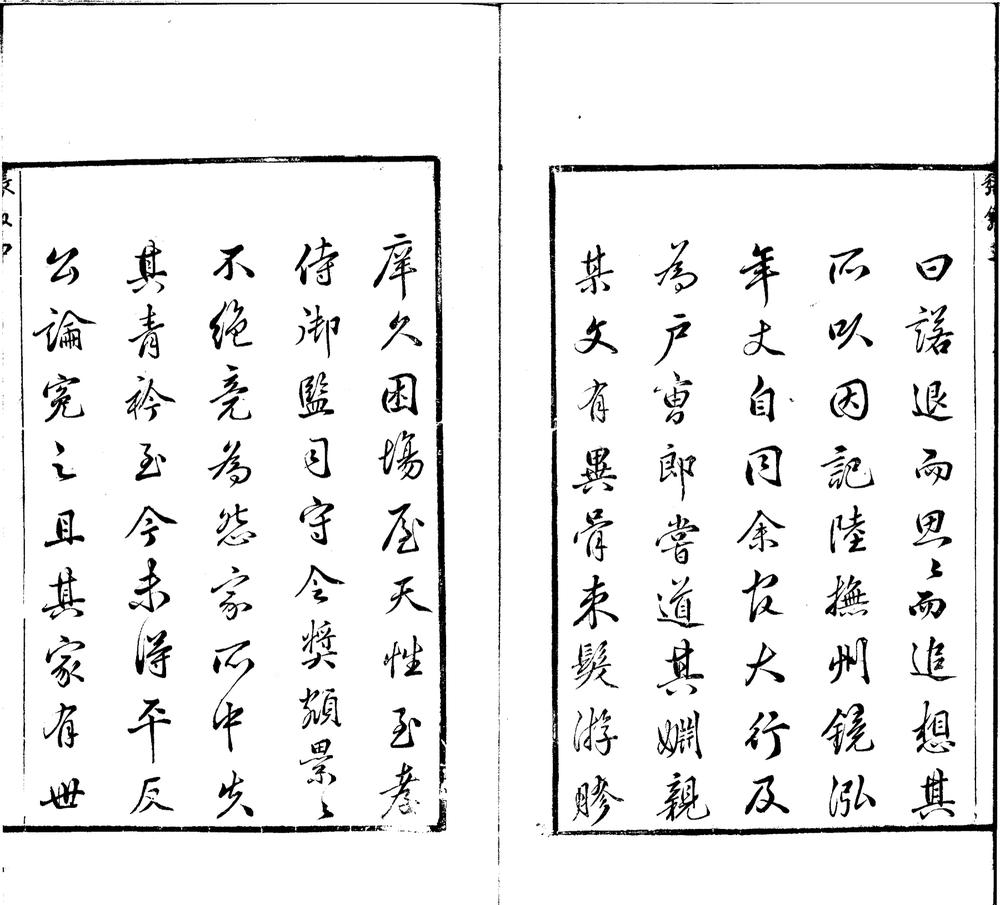 曰諾退而思〻而追想其
所以因記陸撫州鏡泓
年丈自同余官大行及
為戶曹郎嘗道其姻親
某文有異骨束髮游膠
庠久困場屋天性至孝
侍御監司守令獎額累〻
不絕竟為怨家所中失
其青衿至今未得平反
公論冤之且其家有世